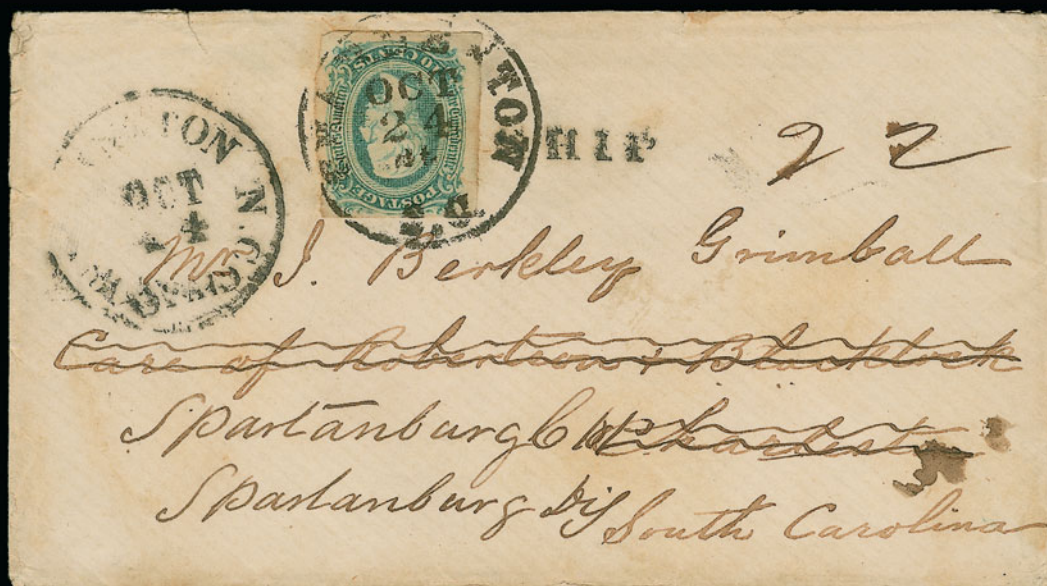 OCT
24
S.C.
SHIP
22
TEN CENTS
POSTAGE
OCT
N.C.
Mr J. Berkley Grimball
Care of Robertson & Blacklock
Spartanburg C H Charleston
Spartanburg Dis South Carolina